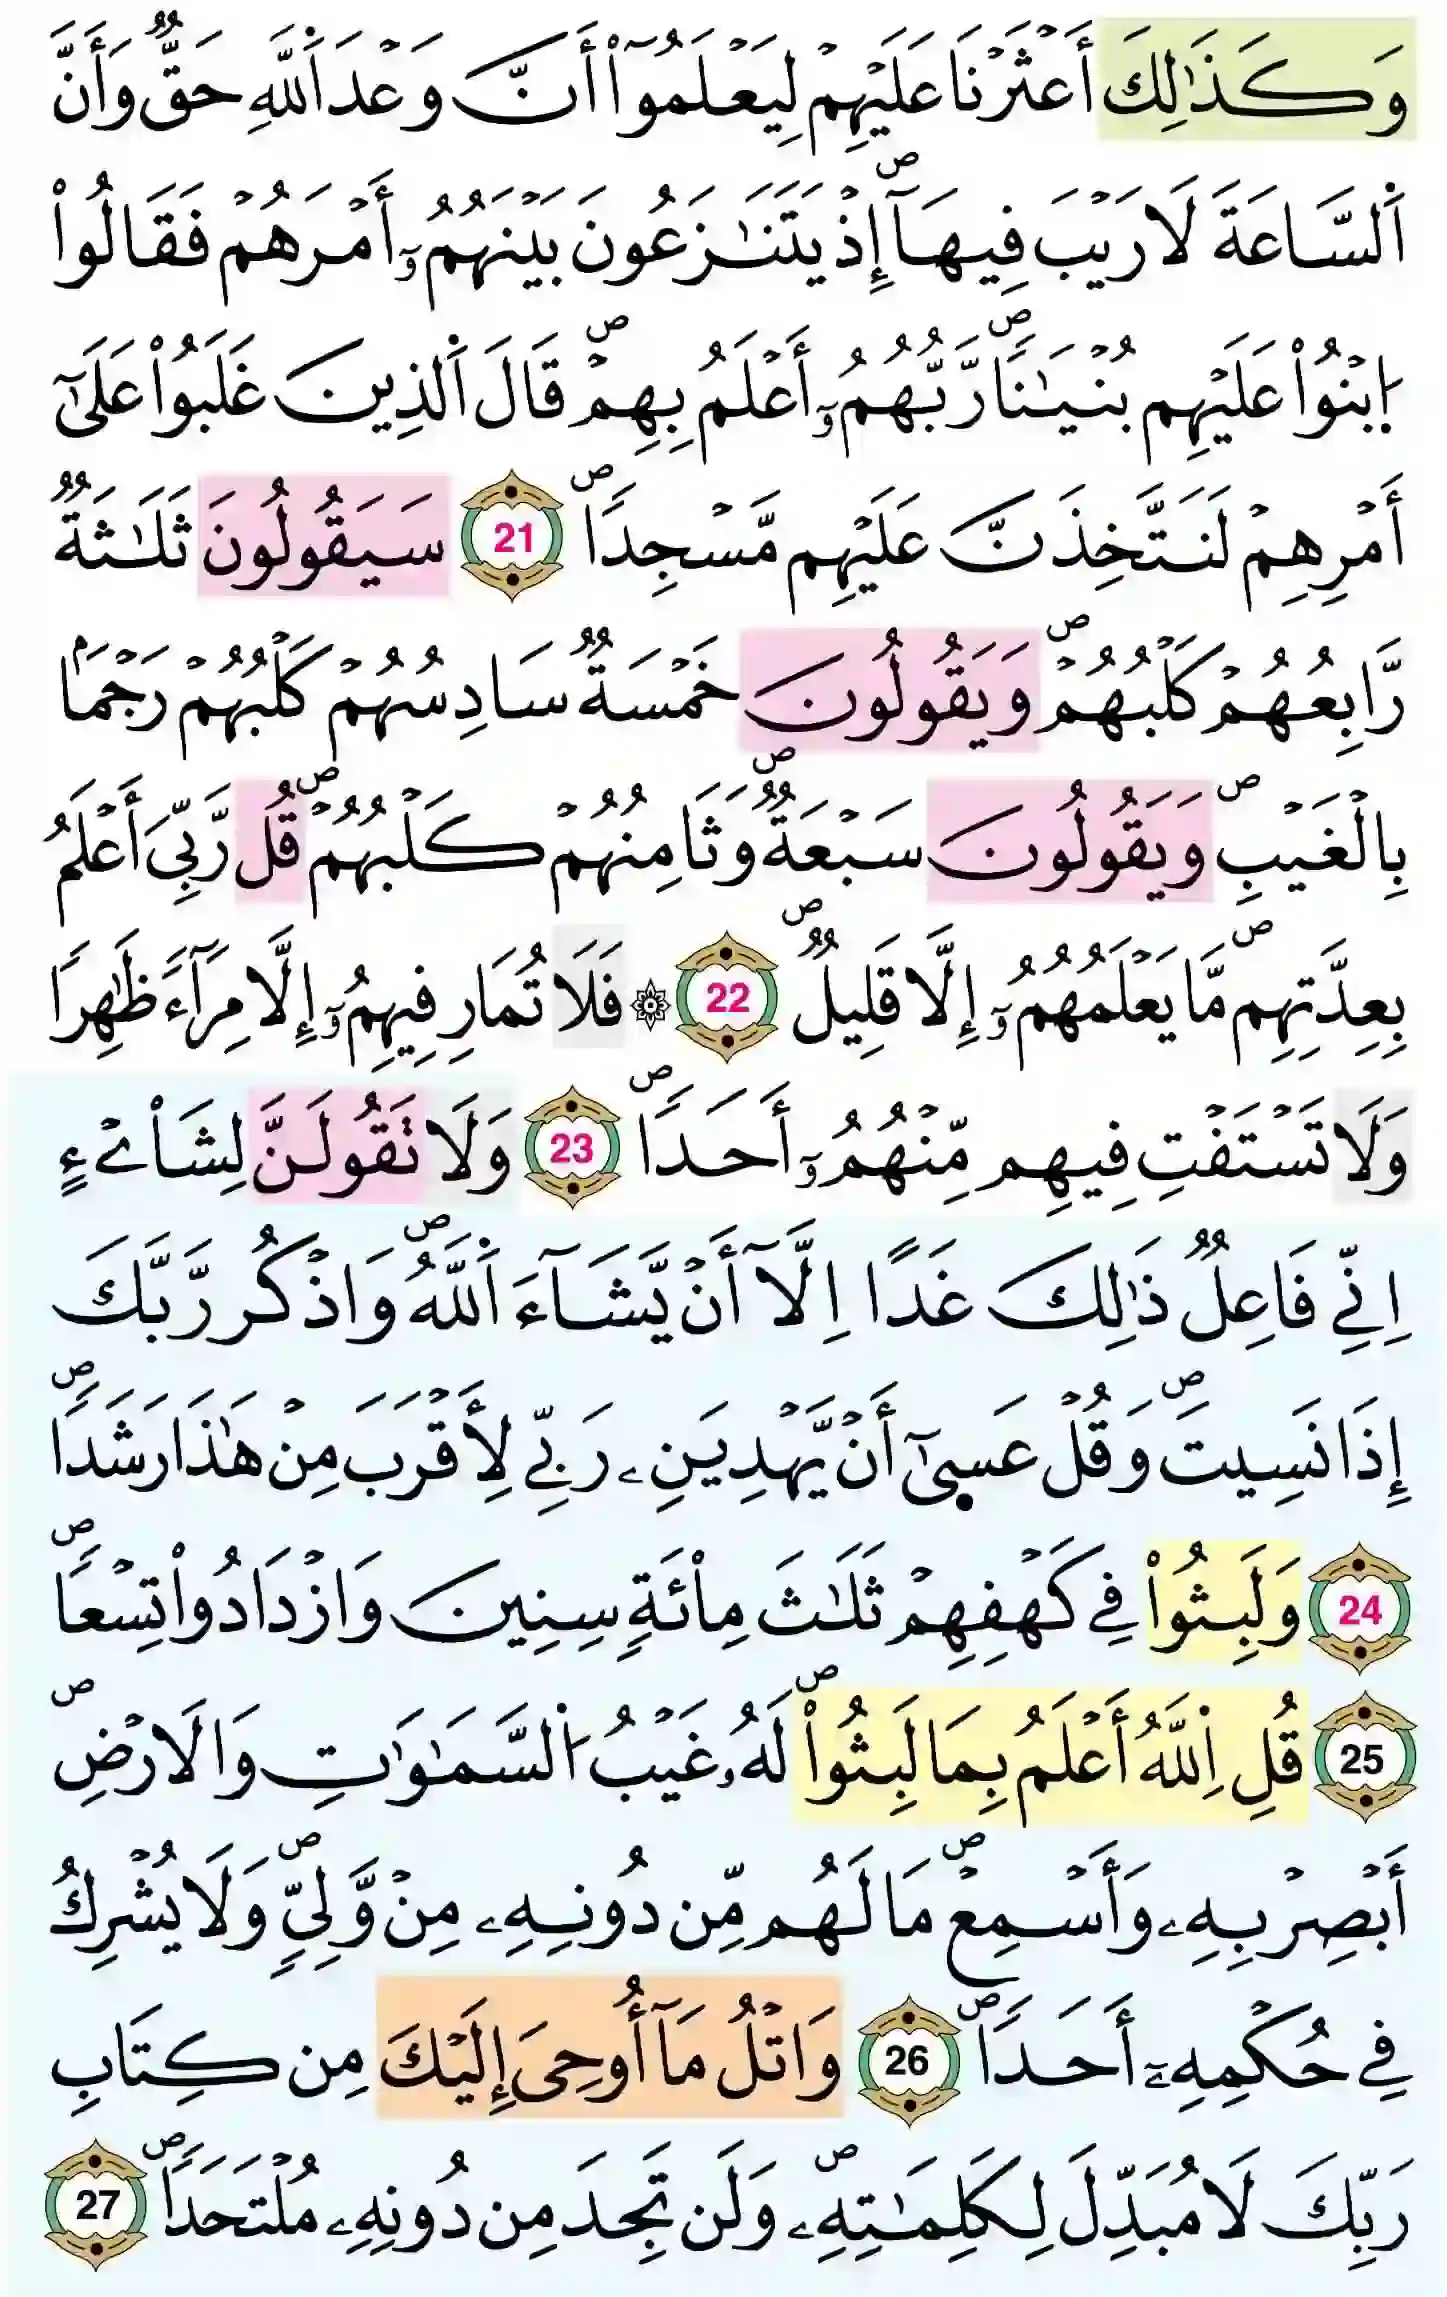 وَكَذَٰلِكَ أَعْثَرْنَا عَلَيْهِمْ لِيَعْلَمُوٓاْ أَنَّ وَعْدَ اَ۬للَّهِ حَقّٞ وَأَنَّ
اَ۬لسَّاعَةَ لَا رَيْبَ فِيهَآۖ إِذْ يَتَنَٰزَعُونَ بَيْنَهُمُۥٓ أَمْرَهُمْ فَقَالُواْ
اُ۪بْنُواْ عَلَيْهِم بُنْيَٰناٗۖ رَّبُّهُمُۥٓ أَعْلَمُ بِهِمْۖ قَالَ اَ۬لذِينَ غَلَبُواْ عَلَىٰٓ
أَمْرِهِمْ لَنَتَّخِذَنَّ عَلَيْهِم مَّسْجِداٗۖ 21 سَيَقُولُونَ ثَلَٰثَةٞ
رَّابِعُهُمْ كَلْبُهُمْۖ وَيَقُولُونَ خَمْسَةٞ سَادِسُهُمْ كَلْبُهُمْ رَجْماَۢ
بِالْغَيْبِۖ وَيَقُولُونَ سَبْعَةٞۖ وَثَامِنُهُمْ كَلْبُهُمْۖ قُل رَّبِّيَ أَعْلَمُ
بِعِدَّتِهِم مَّا يَعْلَمُهُمُۥٓ إِلَّا قَلِيلٞۖ 22 ۞ فَلَا تُمَارِ فِيهِمُۥٓ إِلَّا مِرَآءٗ ظَٰهِراٗ
وَلَا تَسْتَفْتِ فِيهِم مِّنْهُمُۥٓ أَحَداٗۖ 23 وَلَا تَقُولَنَّ لِشَاْےْءٍ
اِنِّے فَاعِلٞ ذَٰلِكَ غَداً اِلَّآ أَنْ يَّشَآءَ اَ۬للَّهُۖ وَاذْكُر رَّبَّكَ
إِذَا نَسِيتَۖ وَقُلْ عَس۪ىٰٓ أَنْ يَّهْدِيَنِۦ رَبِّے لِأَقْرَبَ مِنْ هَٰذَا رَشَداٗۖ
24 وَلَبِثُواْ فِے كَهْفِهِمْ ثَلَٰثَ مِاْئَةٖ سِنِينَ وَازْدَادُواْ تِسْعاٗۖ
25 قُلِ اِ۬للَّهُ أَعْلَمُ بِمَا لَبِثُواْۖ لَهُۥ غَيْبُ اُ۬لسَّمَٰوَٰتِ وَالَارْضِۖ
أَبْصِرْ بِهِۦ وَأَسْمِعْۖ مَا لَهُم مِّن دُونِهِۦ مِنْ وَّلِيّٖۖ وَلَا يُشْرِكُ
فِے حُكْمِهِۦٓ أَحَداٗۖ 26 وَاتْلُ مَآ أُوحِيَ إِلَيْكَ مِن كِتَابِ
رَبِّكَ لَا مُبَدِّلَ لِكَلِمَٰتِهِۦۖ وَلَن تَجِدَ مِن دُونِهِۦ مُلْتَحَداٗۖ 27